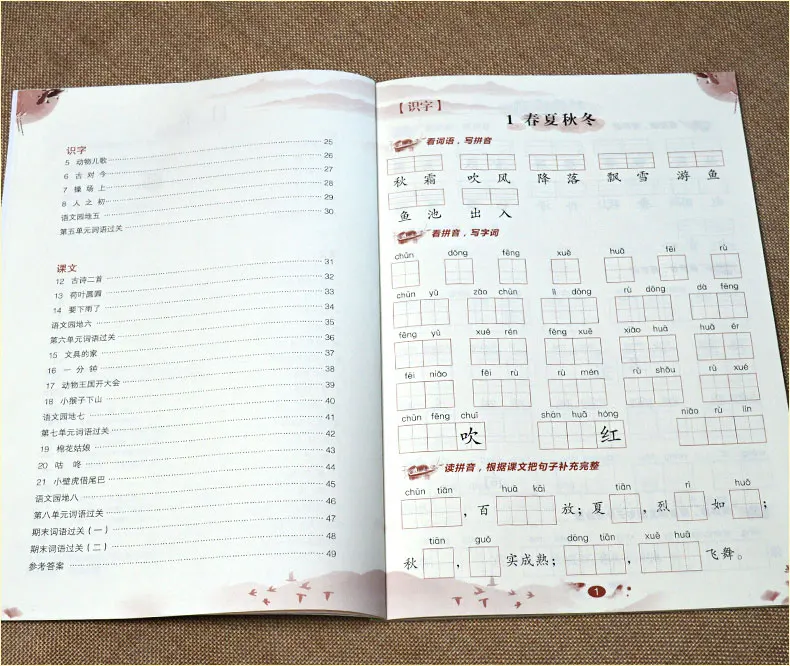 识字
5 动物儿歌 25
6 古 对 今 26
7 操 场 上 27
8 人 之 初 28
语文园地五 29
第五单元词语过关 30
课文
12 古诗二首 31
13 荷叶圆圆 32
14 要下雨了 33
语文园地六 34
第六单元词语过关 35
15 文具的家 36
16 一 分 钟 37
17 动物王国开大会 38
18 小猴子下山 39
语文园地七 40
第七单元词语过关 41
19 棉花姑娘 42
20 咕 咚 43
21 小壁虎借尾巴 44
语文园地八 45
第八单元词语过关 46
期末词语过关(一) 47
期末词语过关(二) 48
参考答案 49
【识字】
1 春夏秋冬
看词语,写拼音
秋 霜 吹 风 降 落 飘 雪 游 鱼
鱼 池 出 入
看拼音,写字词
chūn dōng fēng xuě huā fēi rù
chūn yǔ zǎo chūn lì dōng rù dōng dà fēng
fēng yǔ xuě rén fēng xuě xiǎo huā huā ér
fēi niǎo fēi rù rù mén rù shǒu rù xuě
chūn fēng chuī shān huā hóng niǎo rù lín
吹 红
读拼音,根据课文把句子补充完整
chūn tiān huā kāi tiān rì huǒ
,百 放;夏 ,烈 如 ;
tiān guǒ dōng tiān xuě huā
秋 , 实成熟; , 飞舞。
1